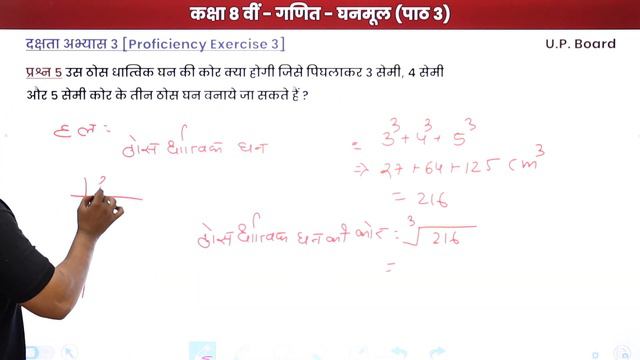 कक्षा 8 वीं - गणित - घनमूल (पाठ 3)
दक्षता अभ्यास 3 [Proficiency Exercise 3]
U.P. Board
प्रश्न 5 उस ठोस धात्विक घन की कोर क्या होगी जिसे पिघलाकर 3 सेमी, 4 सेमी
और 5 सेमी कोर के तीन ठोस घन बनाये जा सकते हैं ?
हल :
ठोस धात्विक घन = 3³ + 4³ + 5³
⇒ 27 + 64 + 125 cm³
= 216
ठोस धात्विक घन की कोर = ∛216
=